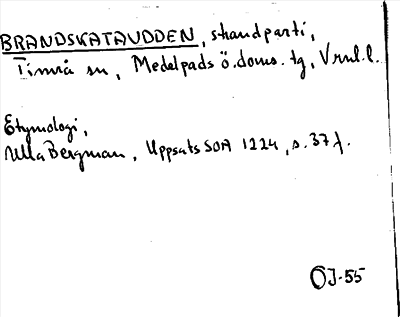 BRANDSKATAUDDEN, strandparti,
Timrå sn, Medelpads ö. doms. tg, Vnl. l.
Etymologi,
Ulla Bergman, Uppsats SOA 1224, s. 37 f.
OJ-55